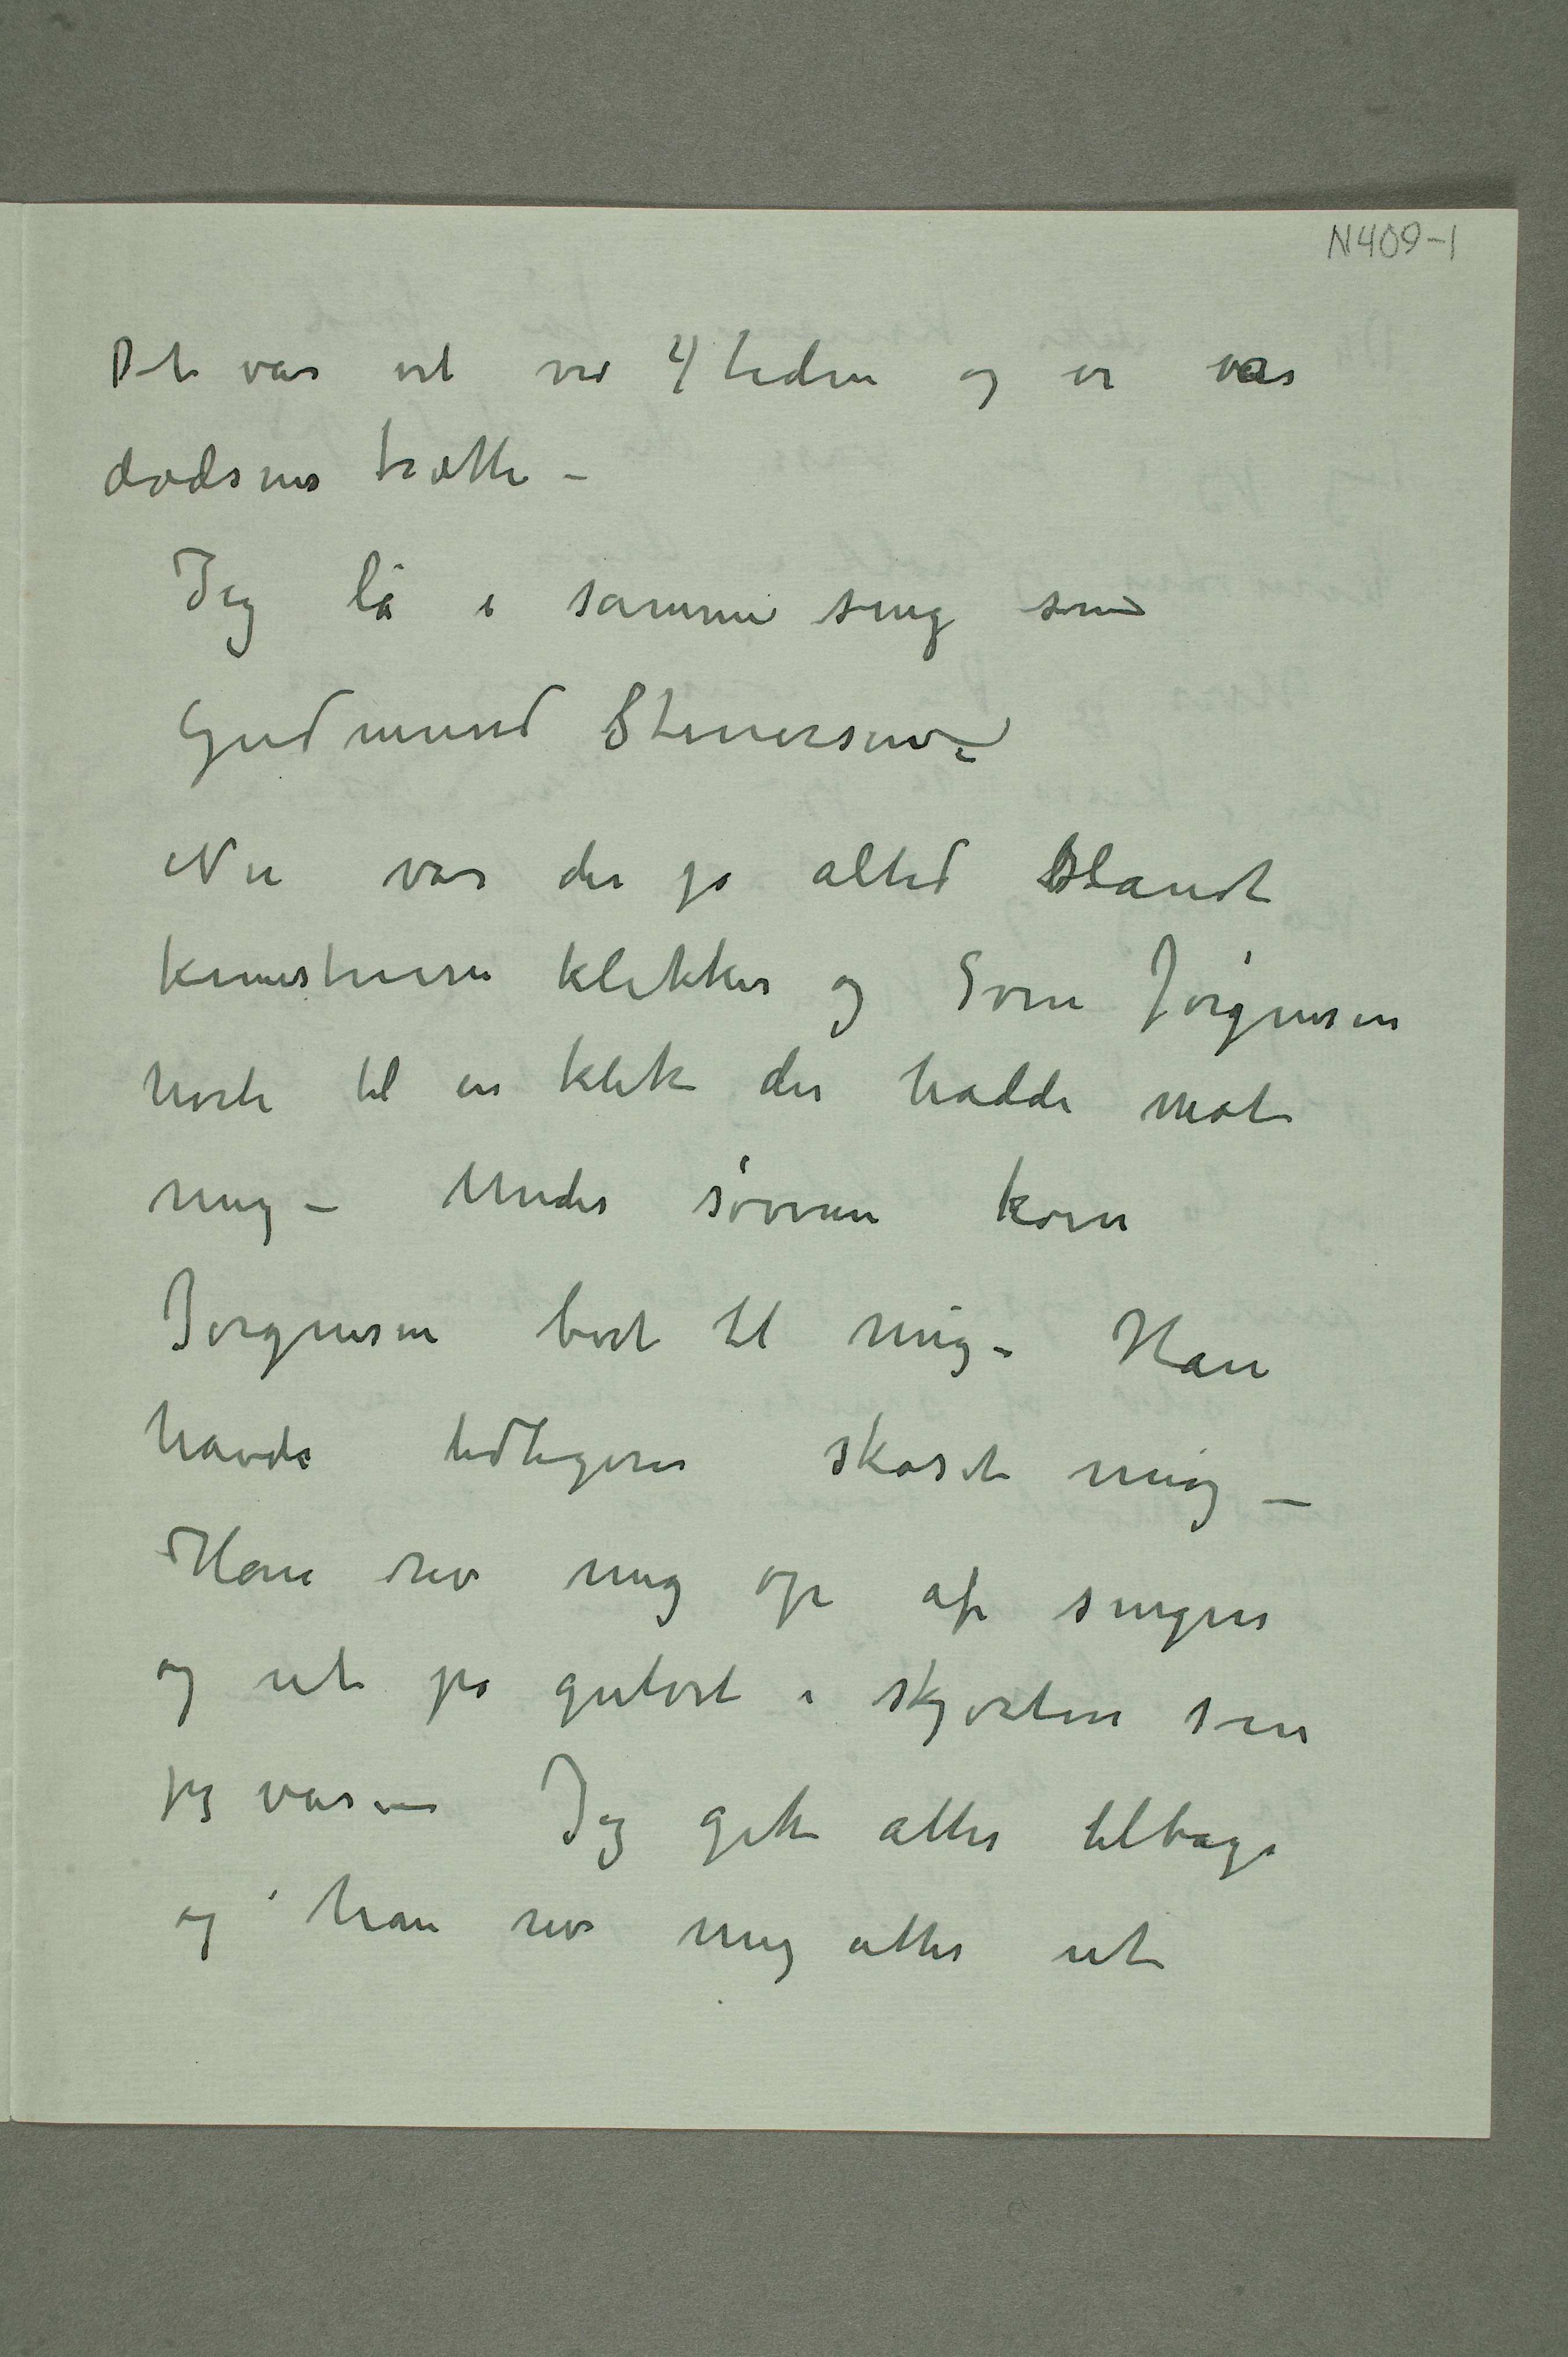 N409-1
Det var vel ved 4 tiden og vi var
dødsens trætte –
Jeg lå i samme seng som
Gudmund Stenersen –
Nu var der jo altid blandt
kunstnere klikker og Sven Jørgensen
hørte til en klik der hadde mot
mig – Under søvnen kom
Jørgensen bort til mig – Han
havde tidligere skoset mig –
Han rev mig op af sengen
og ut på gulvet i skjorten som
jeg var – Jeg gik atter tilbage
og han rev mig atter ut